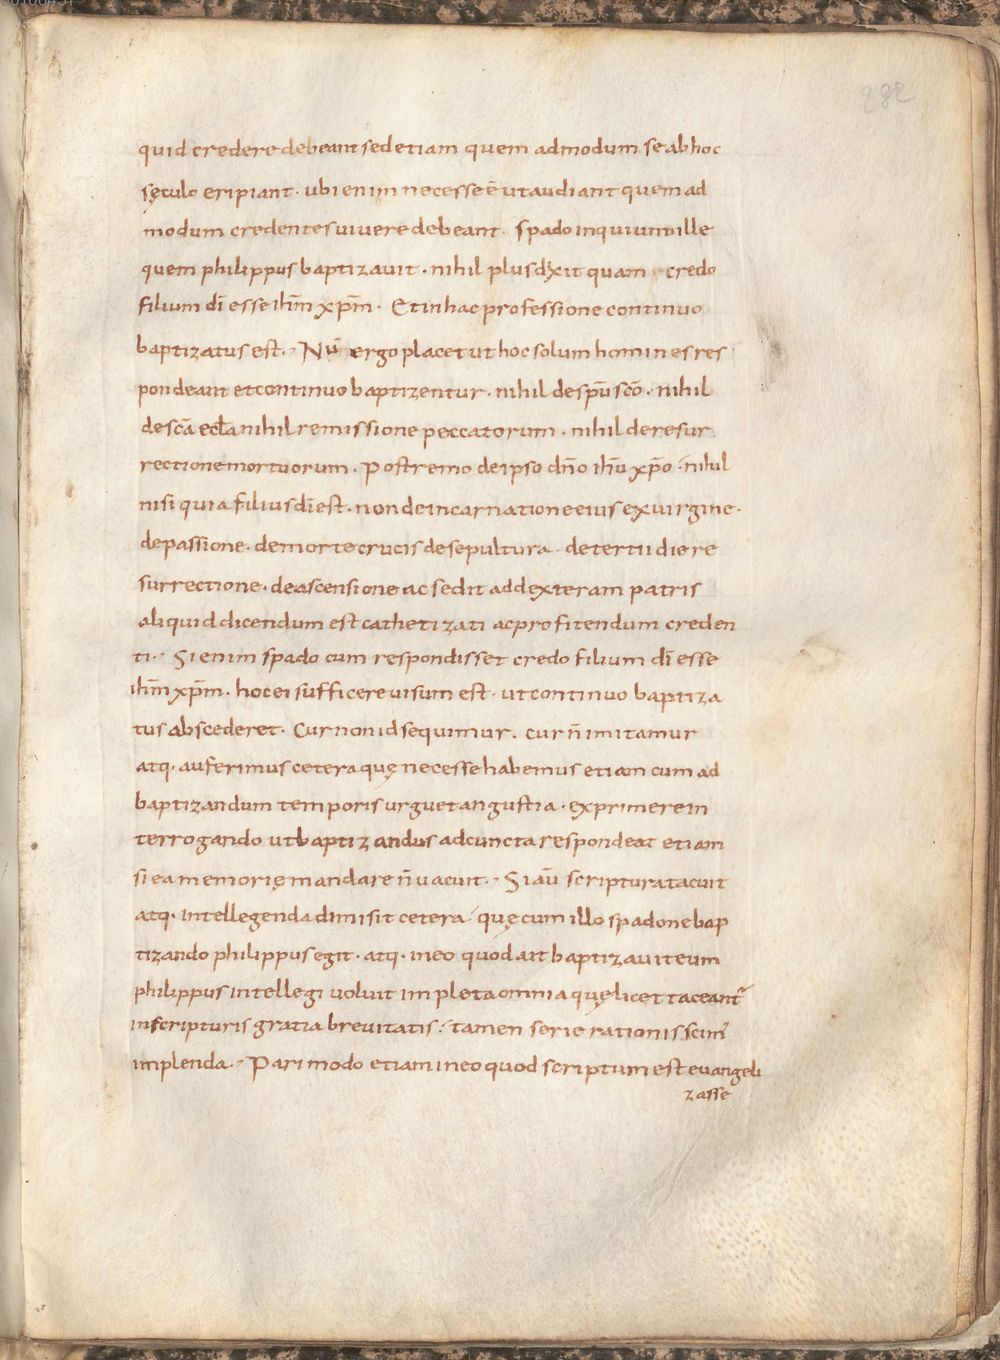 282
quid credere debeant sed etiam quem admodum se ab hoc
sęculo eripiant · ubi enim necesse ē ut audiant quem ad
modum credentes uiuere debeant · spado inquiunt ille
quem philippus baptizauit · nihil plus dixit quam credo
filium dī esse ihm̄ xp̄m · Et in hac professione continuo
baptizatus est · Nū ergo placet ut hoc solum homines res
pondeant et continuo baptizentur · nihil de sp̄u sc̄o · nihil
de sc̄a eccła nihil remissione peccatorum · nihil de resur
rectione mortuorum · Postremo de ipso dn̄o ihū xp̄o · nihil
nisi quia filius dī est · non de incarnatione eius ex uirgine ·
de passione · de morte crucis de sepultura · de tertii die re
surrectione · de ascensione ac sedit ad dexteram patris
aliquid dicendum est cathetizati ac profitendum creden
ti · Si enim spado cum respondisset credo filium dī esse
ihm̄ xp̄m · hoc ei sufficere uisum est · ut continuo baptiza
tus abscederet · Cur non id sequimur · cur n̄ imitamur
atq· auferimus cetera quę necesse habemus etiam cum ad
baptizandum temporis urguet angustia · exprimere in
terrogando ut baptizandus ad cuncta respondeat etiam
si ea memorię mandare n̄ uacuit · Si aū scriptura tacuit
atq· intellegenda dimisit cetera quę cum illo spadone bap
tizando philippus egit · atq· in eo quod ait baptizauit eum
philippus intellegi uoluit impleta omnia quę licet taceant̄
in scripturis gratia breuitatis · tamen serie rationis scim̄
implenda · Pari modo etiam in eo quod scriptum est euangeli
zasse